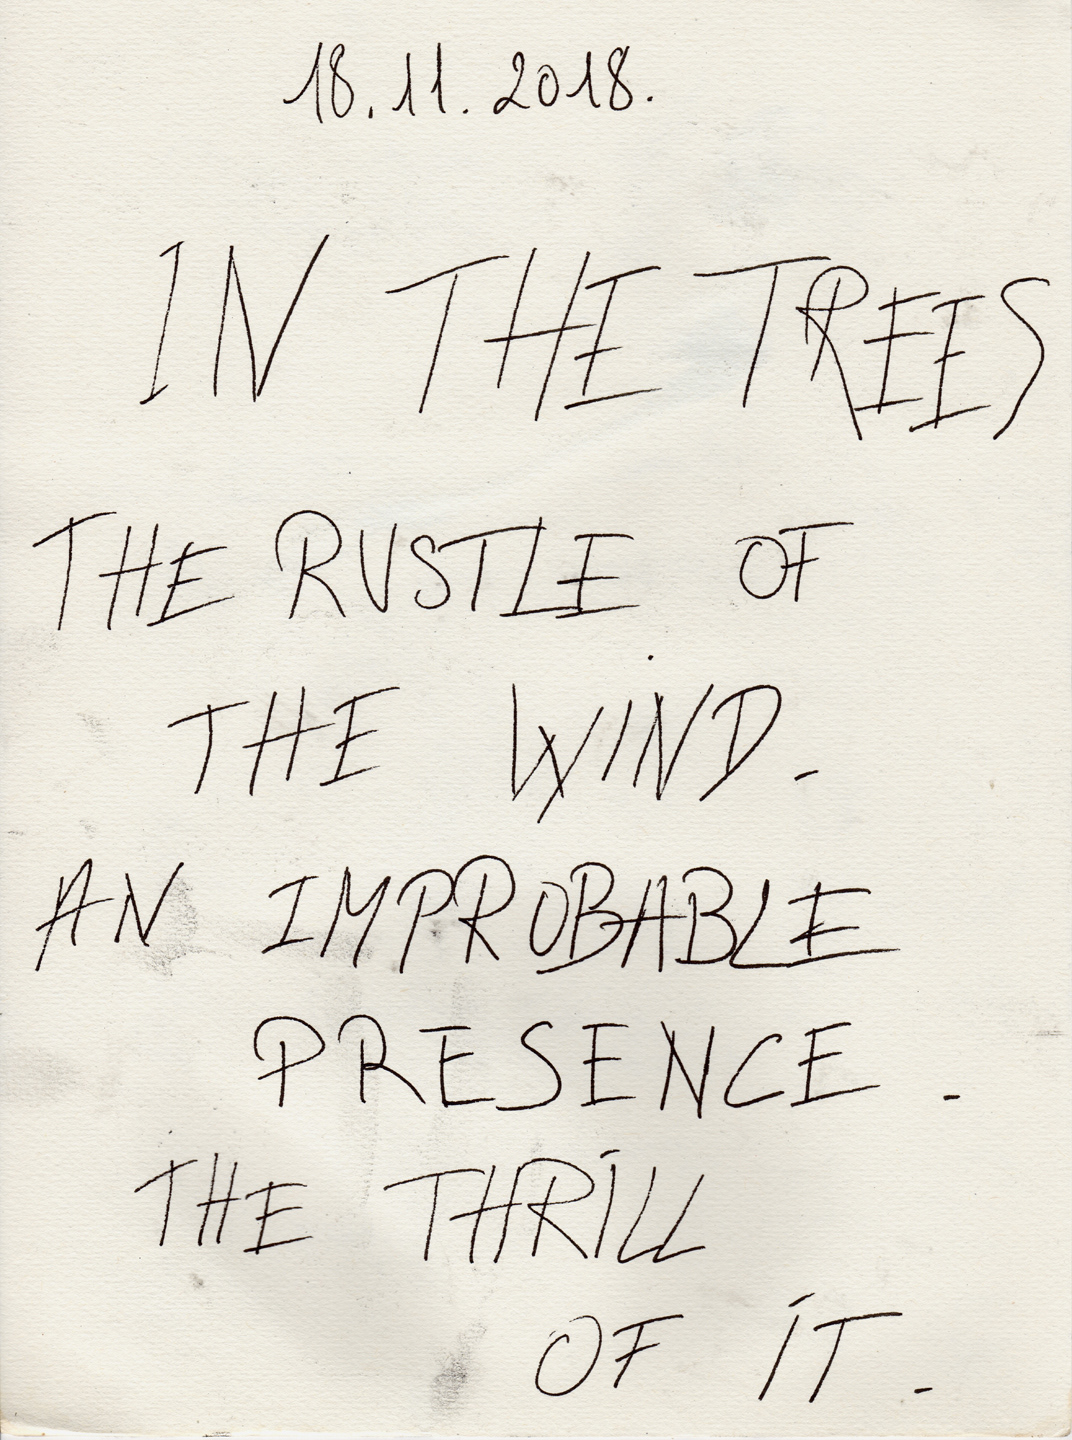 18.11.2018.
IN THE TREES
THE RUSTLE OF
THE WIND.
AN IMPROBABLE
PRESENCE.
THE THRILL
OF IT.